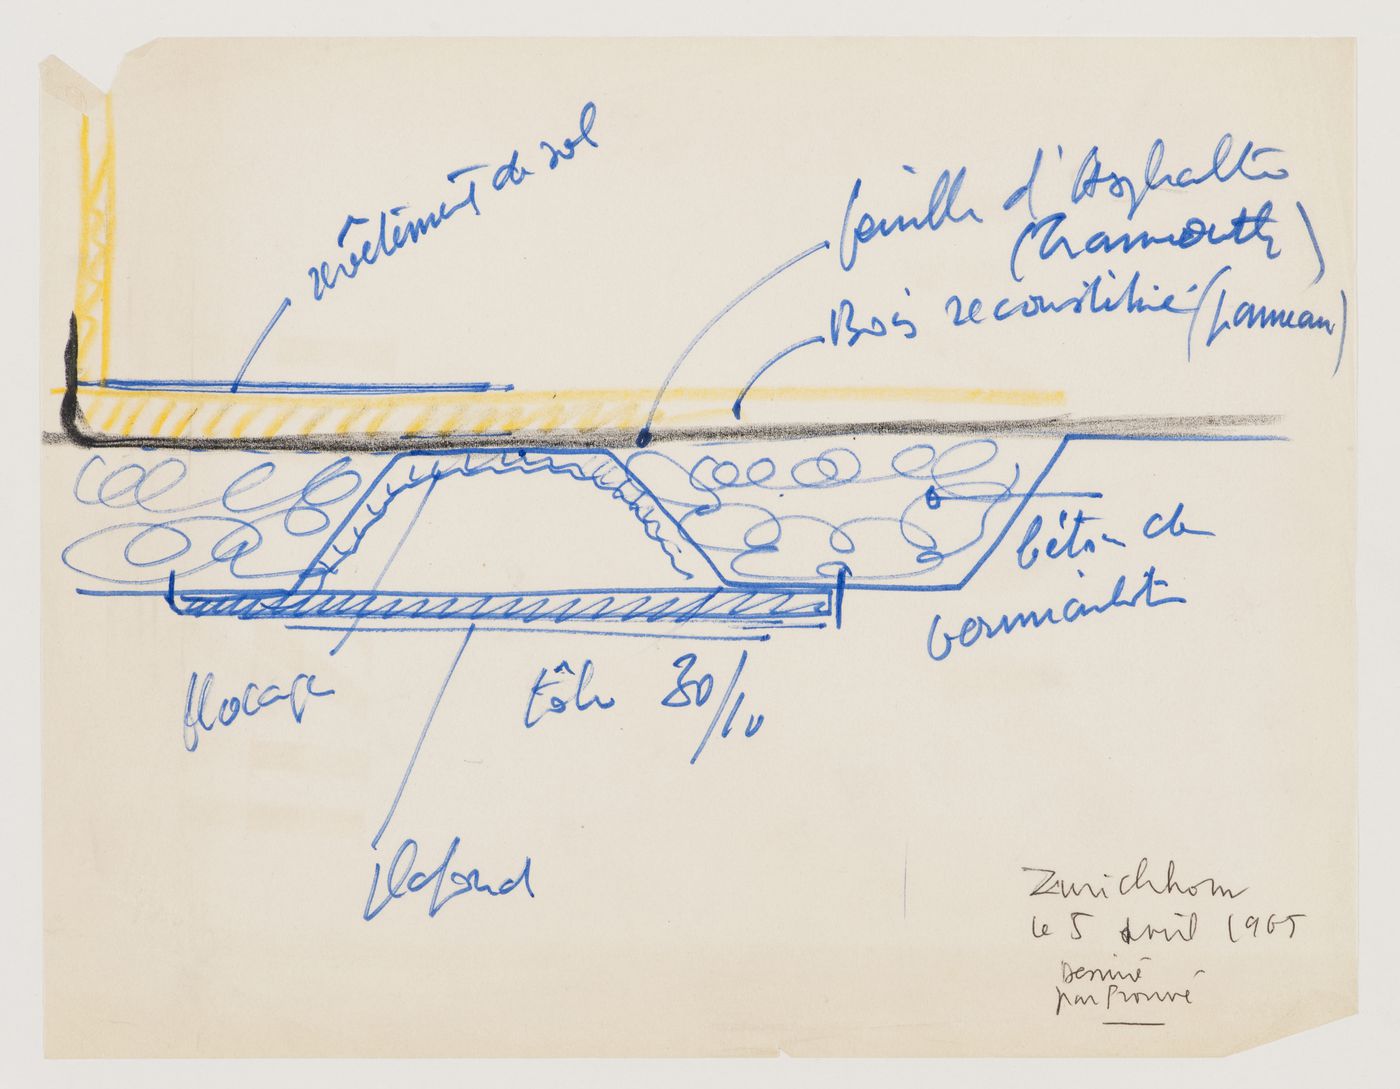 revêtement de sol
feuille d'Asphalte
Bois reconstitué (panneau)
béton de
vermiculite
flocage
tôle 30/10
plafond
Zurichhorn
le 5 avril 1965
Dessiné
par Prouvé